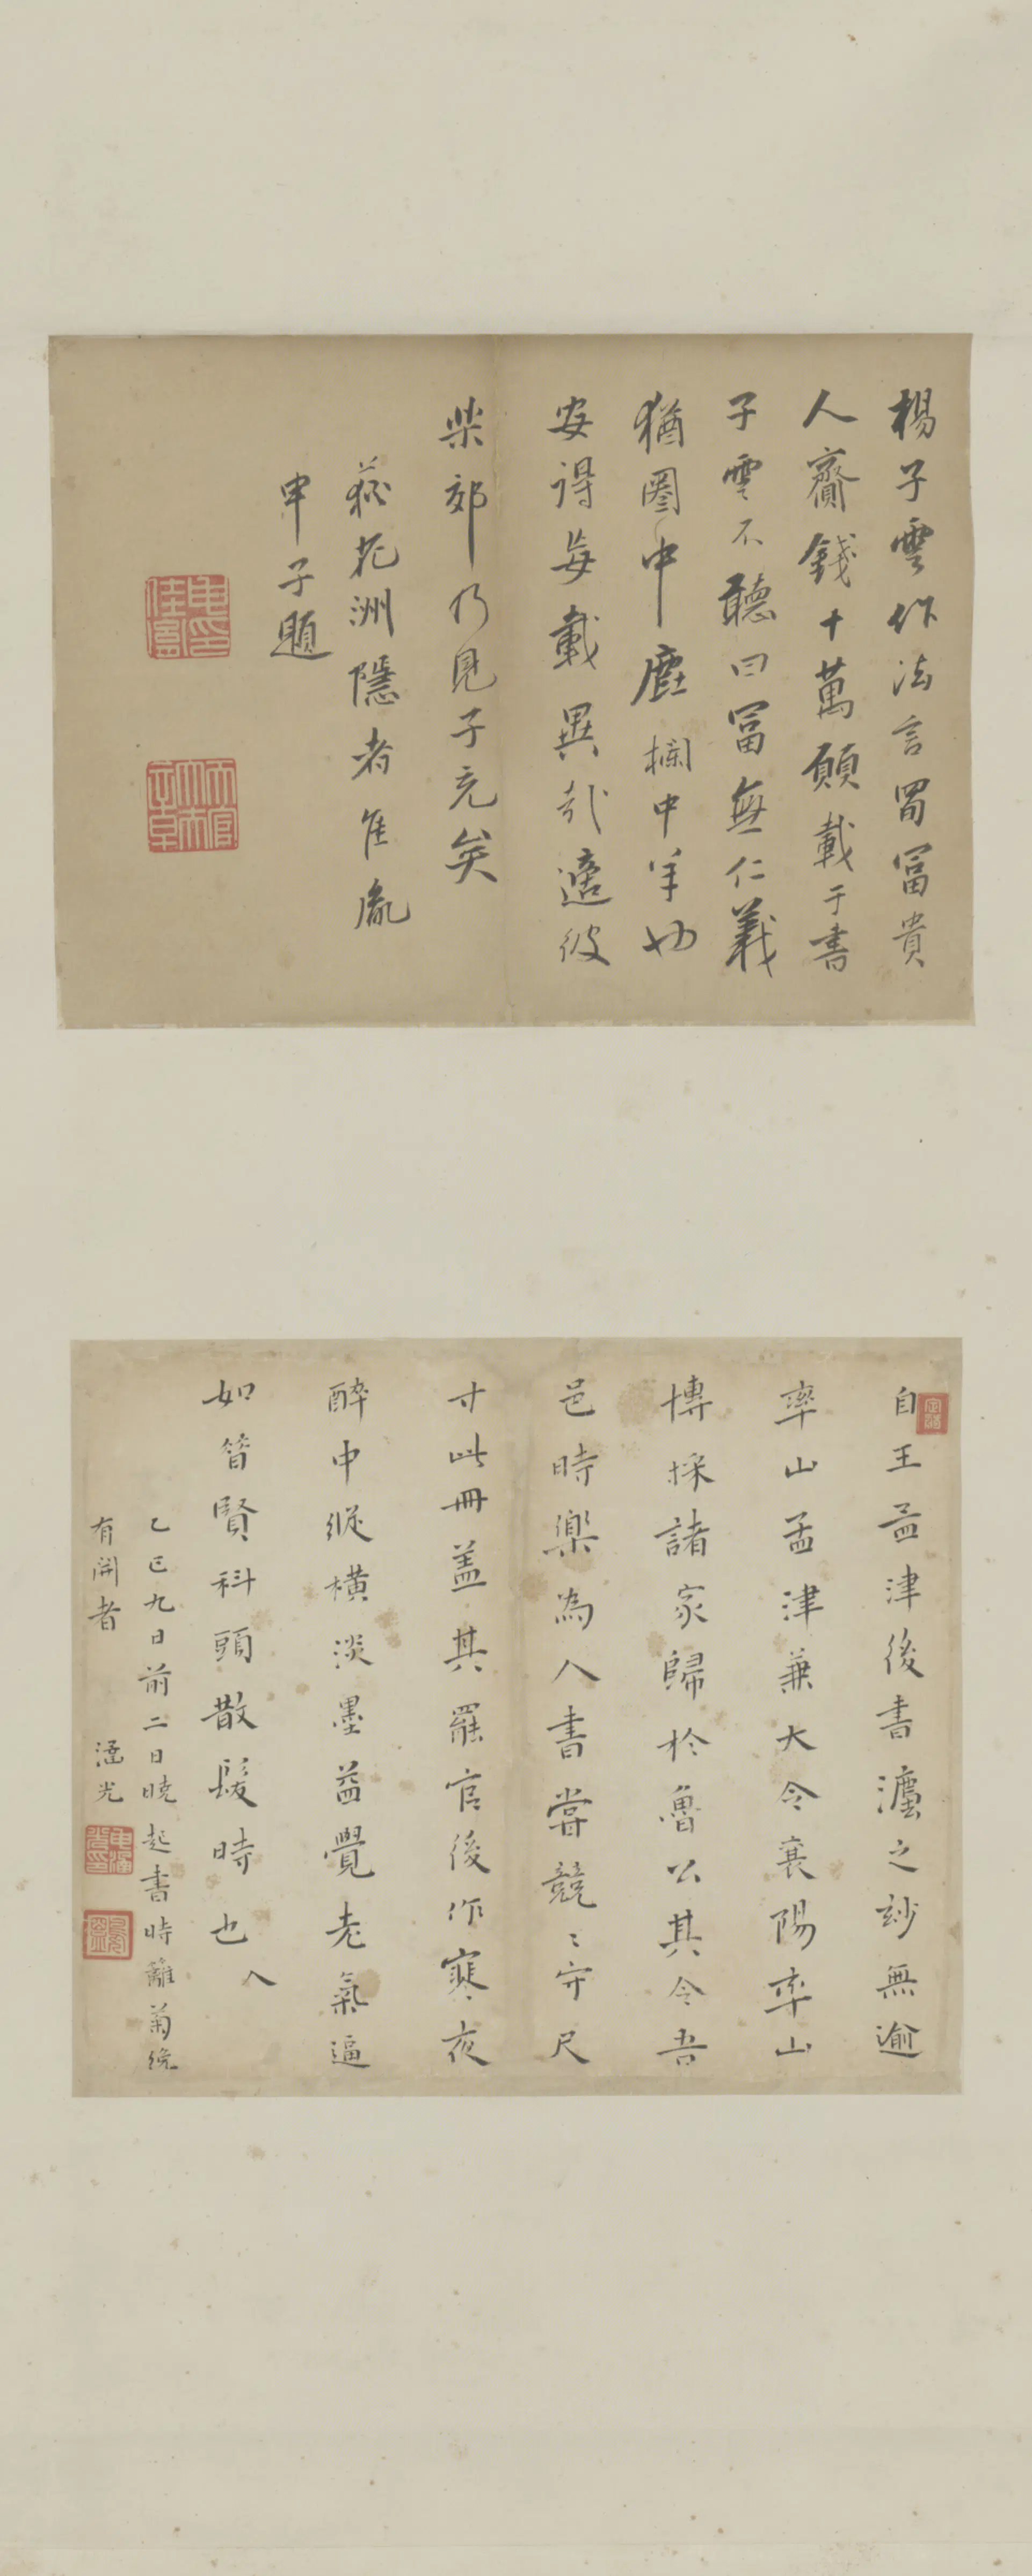 楊子雲作法言蜀富貴
人齎錢十萬願載于書
子雲不聽曰富無仁義
猶圈中鹿欄中羊也
安得每載異哉適彼
柴郊乃見子充矣
荻花洲隱者隹胤
申子題
自王孟津後書灋之玅無逾
率山孟津兼大令襄陽率山
博採諸家歸於魯公其令吾
邑時樂為人書嘗競〻守尺
寸此冊盖其罷官後作寒夜
醉中縱橫淡墨益覺老氣逼
人
如昝賢科頭散髮時也
乙巳九日前二日曉起書時籬菊纔
有開者
涵光